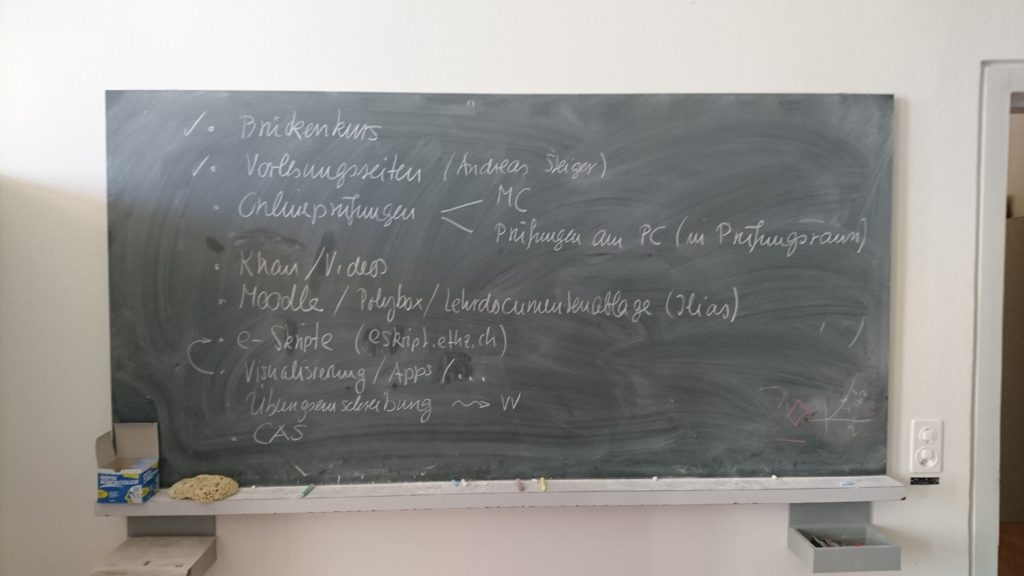 ✓ • Brückenkurs
✓ • Vorlesungsseiten (Andreas Steiger)
• Onlineprüfungen < MC
Prüfungen am PC (in Prüfungsraum)
• Khan / Videos
• Moodle / Polybox / Lehrdocumentenablage (Ilias)
• e-Skripte (eskript.ethz.ch)
• Visualisierung / Apps / ...
Übungseinschreibung ⇝ W
• CAS